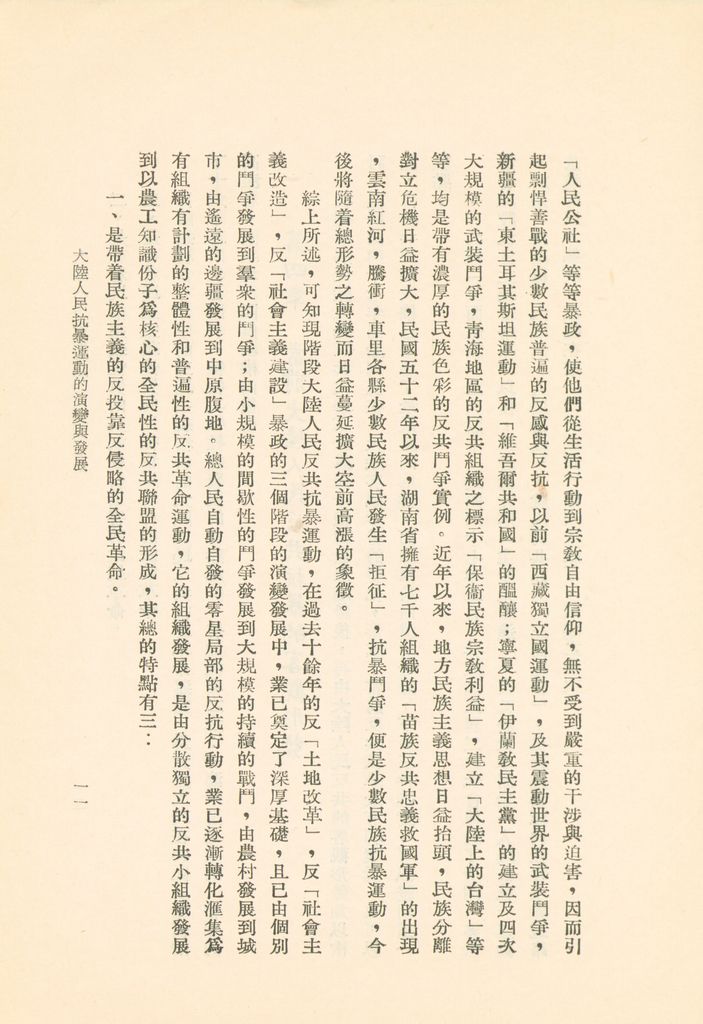 「人民公社」等等暴政，使他們從生活行動到宗敎自由信仰，無不受到嚴重的干涉與迫害，因而引
起剽悍善戰的少數民族普遍的反感與反抗，以前「西藏獨立國運動」，及其震動世界的武裝鬥爭，
新疆的「東土耳其斯坦運動」和「維吾爾共和國」的醞釀；寧夏的「伊蘭敎民主黨」的建立及四次
大規模的武裝鬥爭，靑海地區的反共組織之標示「保衞民族宗敎利益」，建立「大陸上的台灣」等
等，均是帶有濃厚的民族色彩的反共鬥爭實例。近年以來，地方民族主義思想日益抬頭，民族分離
對立危機日益擴大，民國五十二年以來，湖南省擁有七千人組織的「苗族反共忠義救國軍」的出現
，雲南紅河，騰衝，車里各縣少數民族人民發生「拒征」，抗暴鬥爭，便是少數民族抗暴運動，今
後將隨着總形勢之轉變而日益蔓延擴大空前高漲的象徵。
綜上所述，可知現階段大陸人民反共抗暴運動，在過去十餘年的反「土地改革」，反「社會主
義改造」，反「社會主義建設」暴政的三個階段的演變發展中，業已奠定了深厚基礎，且已由個別
的鬥爭發展到羣衆的鬥爭；由小規模的間歇性的鬥爭發展到大規模的持續的戰鬥，由農村發展到城
市，由遙遠的邊疆發展到中原腹地。總人民自動自發的零星局部的反抗行動，業已逐漸轉化滙集爲
有組織有計劃的整體性和普遍性的反共革命運動，它的組織發展，是由分散獨立的反共小組織發展
到以農工知識份子爲核心的全民性的反共聯盟的形成，其總的特點有三：
一、是帶着民族主義的反投靠反侵略的全民革命。
大陸人民抗暴運動的演變與發展
一一